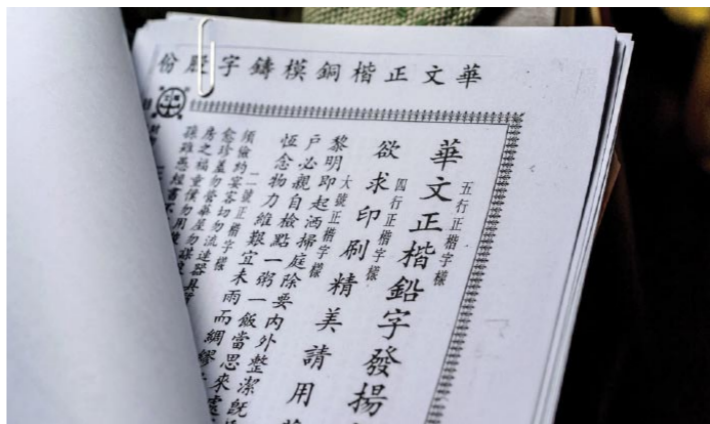 華文正楷銅模鑄字股份
五行正楷字樣
華文正楷鉛字發揚
四行正楷字樣
欲求印刷精美請用華
大號正楷字樣
黎明即起洒掃庭除要內外整潔既
戶必親自檢點一粥一飯當思來處
恆念物力維艱宜未雨而綢繆
二號正楷字樣
須儉約宴客切勿流連器具
愈珍羞勿營華屋勿謀
房之福童僕勿用
孫雖愚經書不